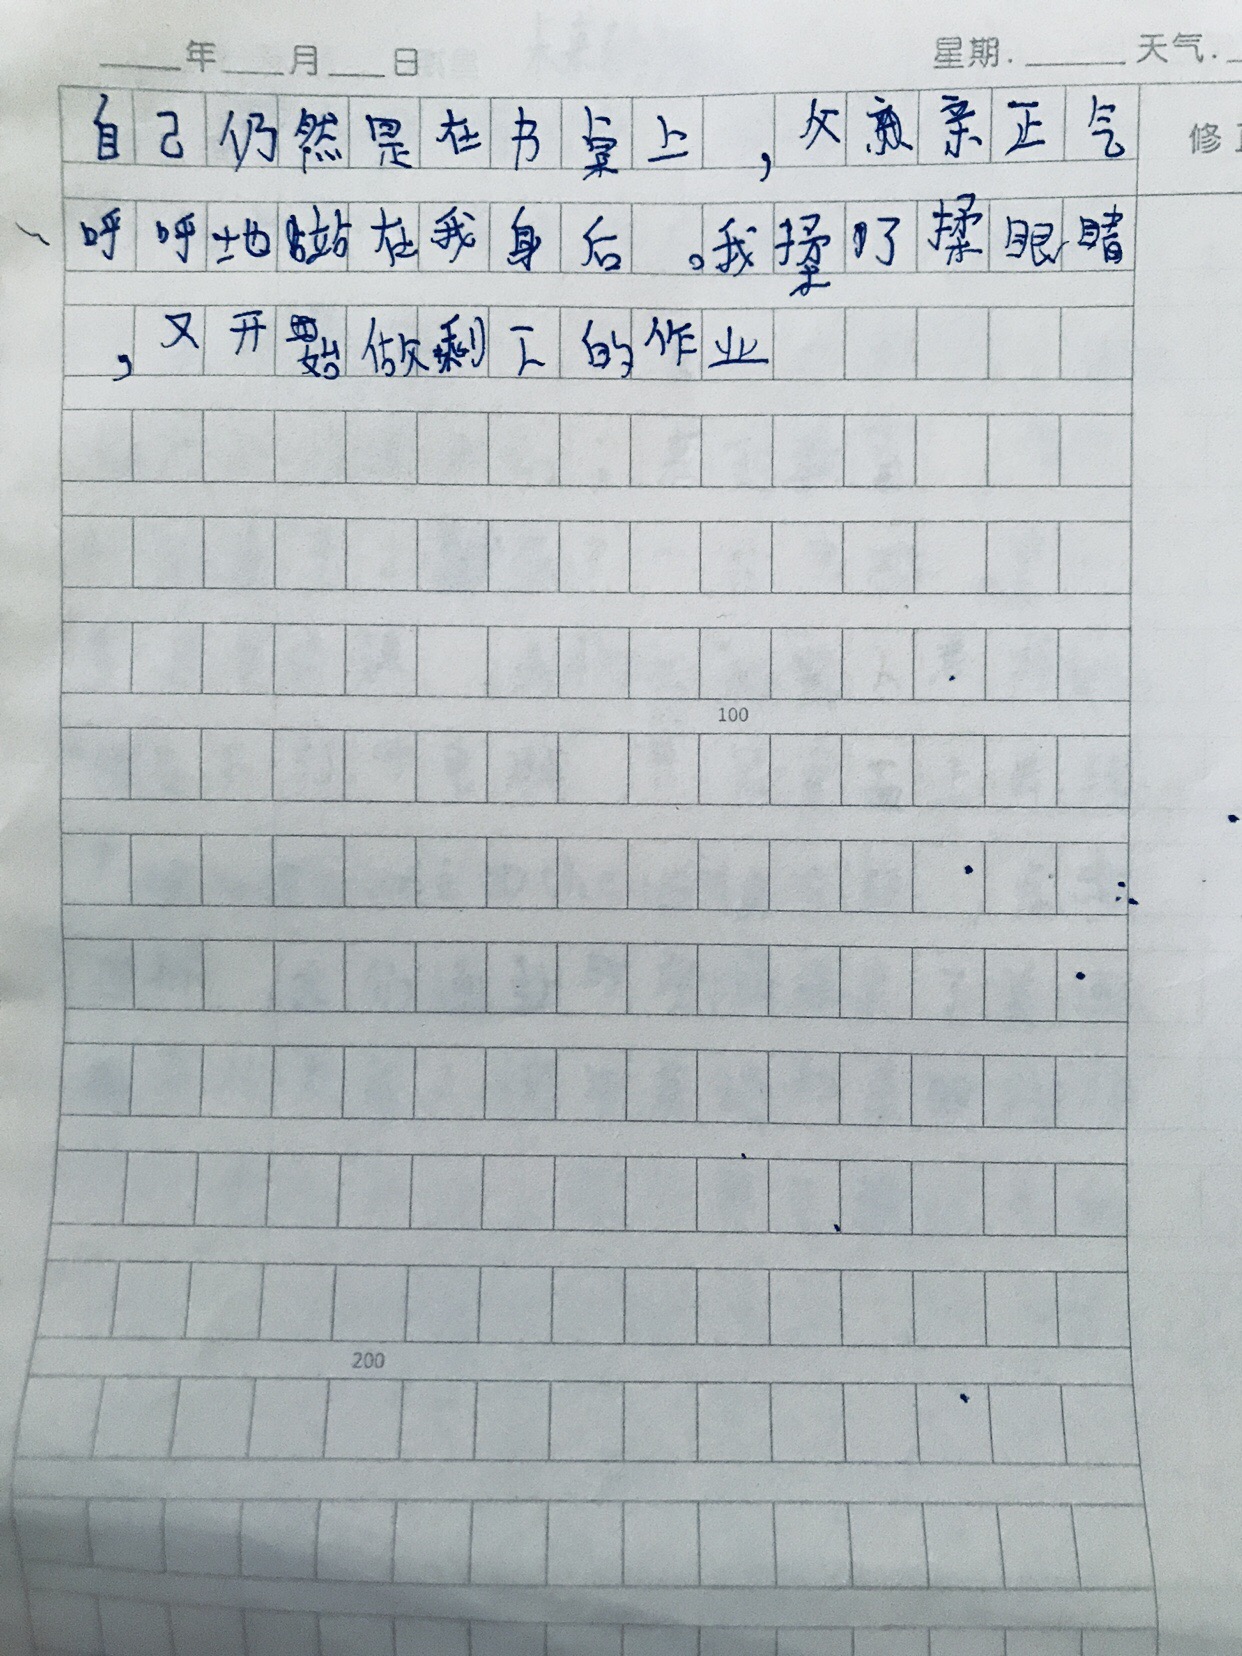 年 月 日 星期. 天气.
自己仍然是在书桌上,父亲正气 修
呼呼地站在我身后。我揉了揉眼睛
,又开始做剩下的作业
100
200